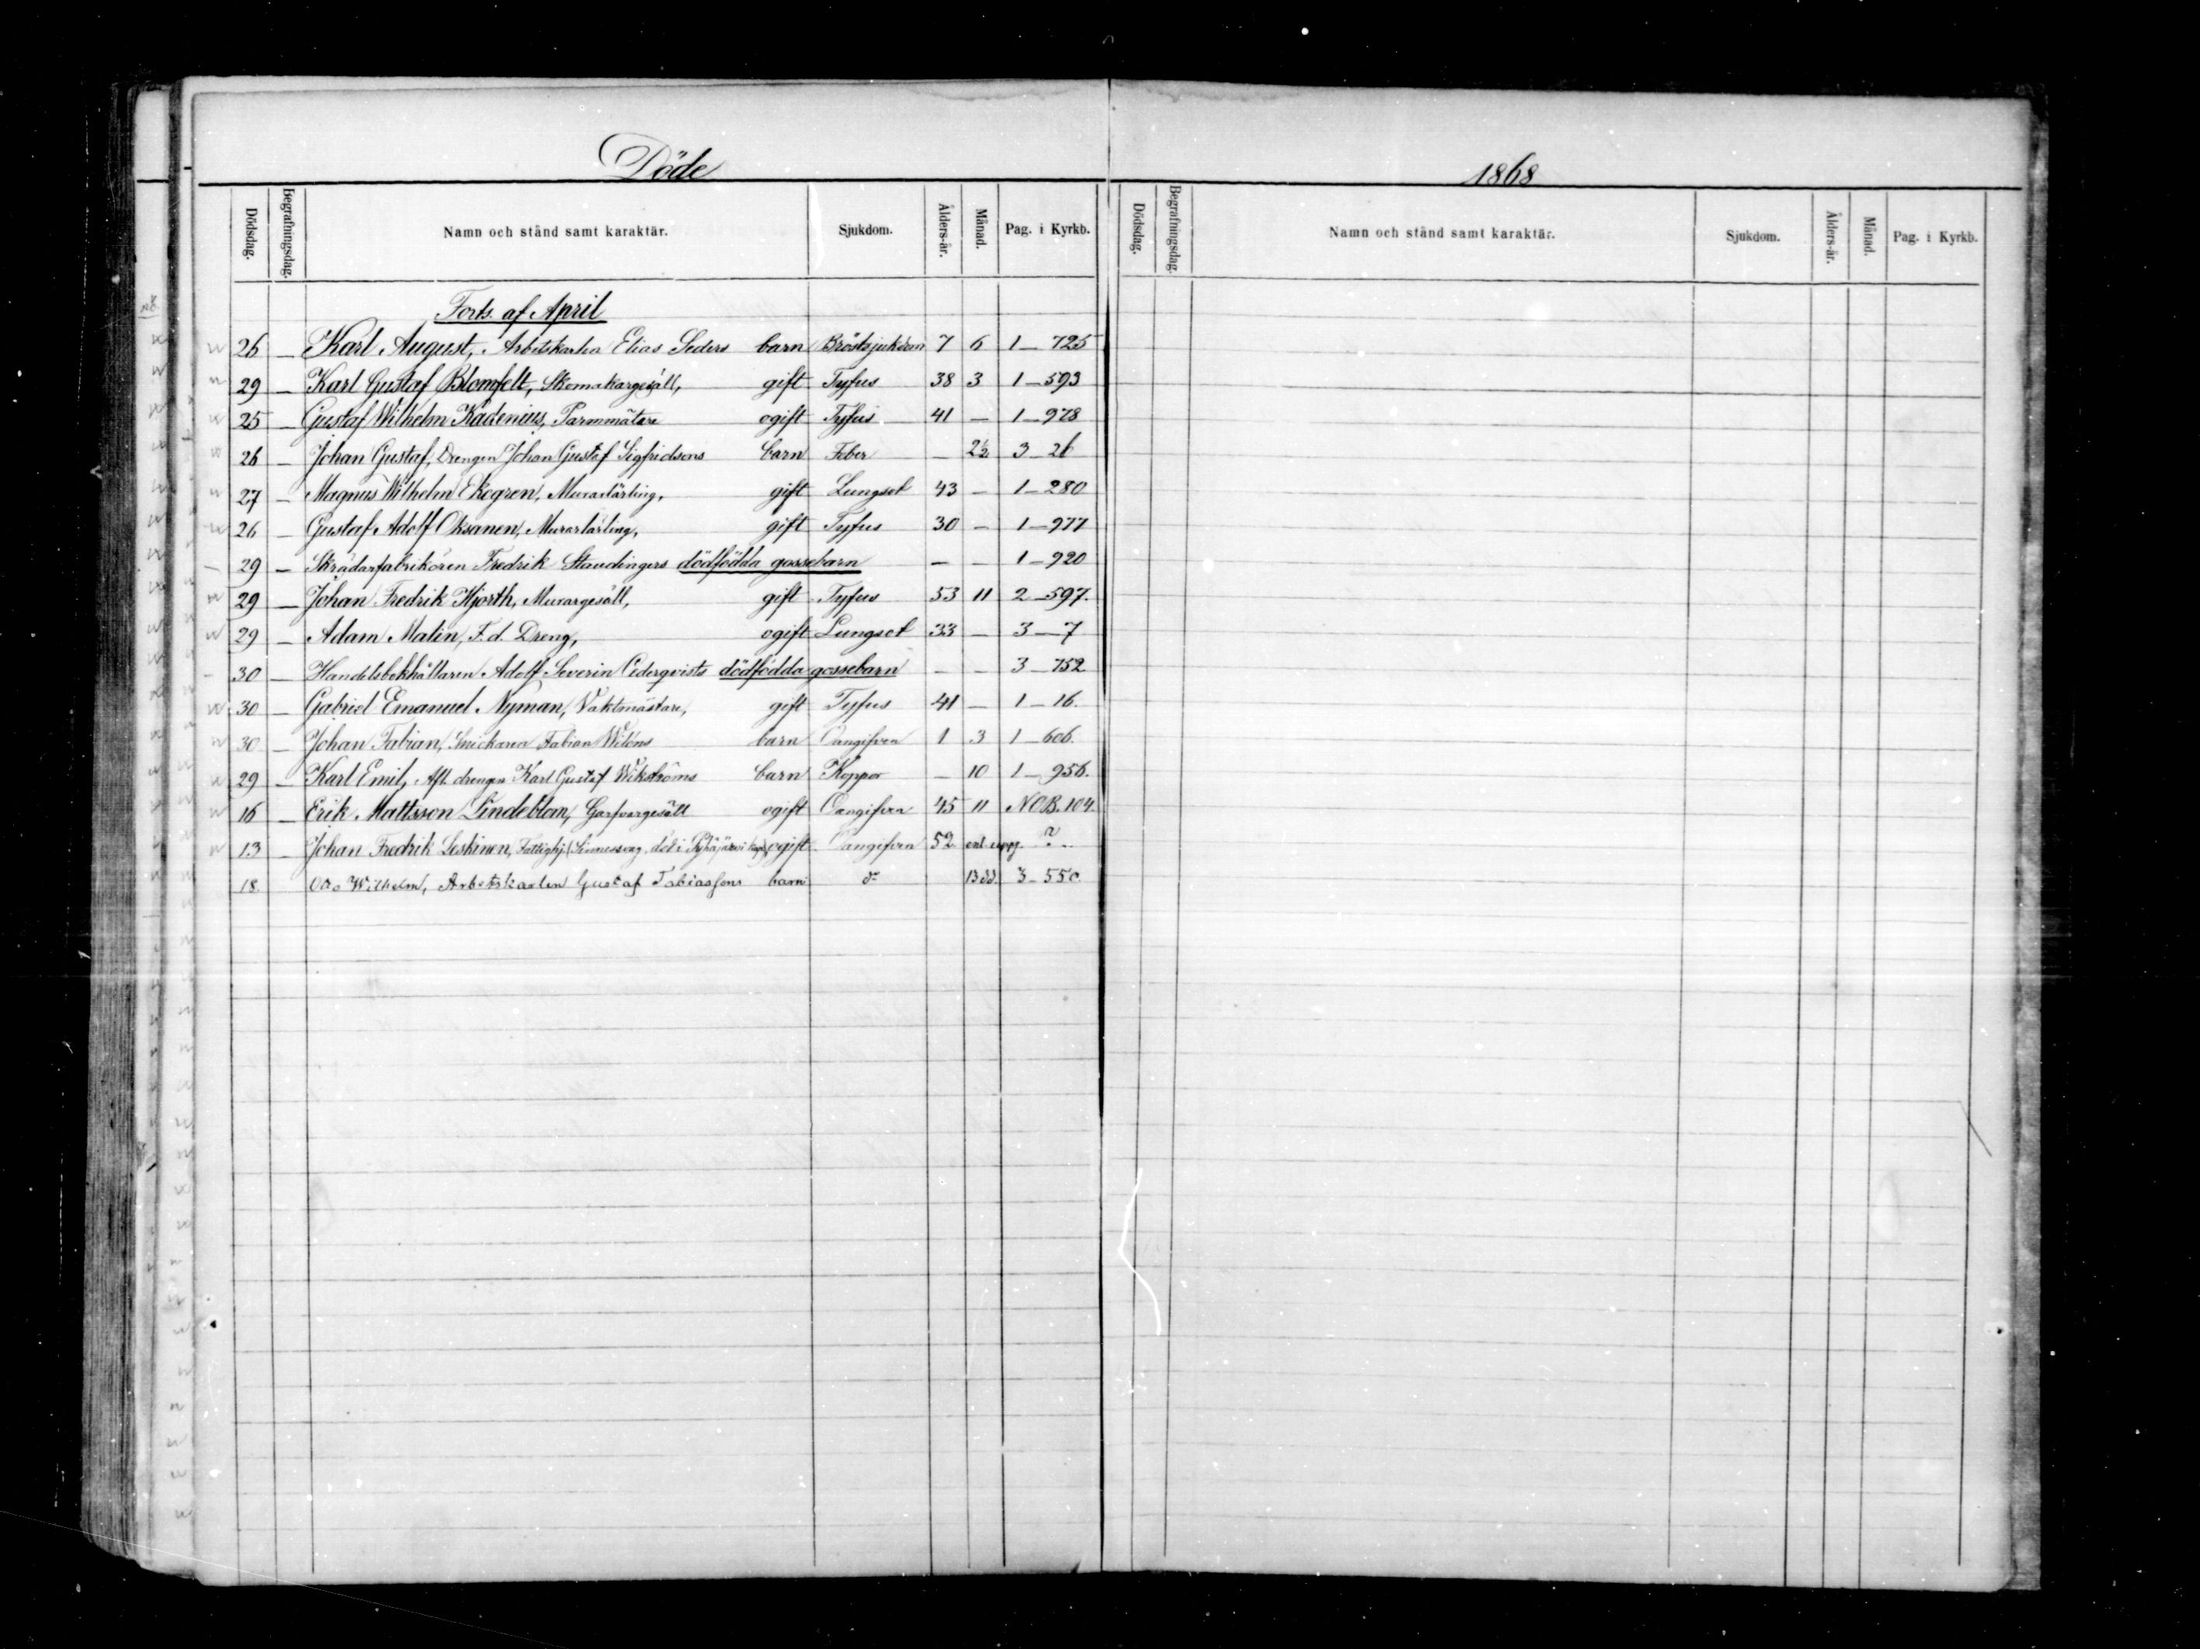 Döde
Dödsdag. Begrafningsdag. Namn och stånd samt karaktär. Sjukdom. Ålders-år. Månad. Pag. i Kyrkb.
Forts. af April
26 — Karl August, Arbetskarlen Elias Seders barn Bröstsjukdom 7 6 1 — 725
29 — Karl Gustaf Blomfelt, Skomakargesäll, gift Tyfus 38 3 1 — 593
25 — Gustaf Wilhelm Kadenius, Parmmätare ogift Tyfus 41 — 1 — 978
26 — Johan Gustaf, Drengen Johan Gustaf Sigfridsons barn Feber — 2½ 3 — 26
27 — Magnus Wilhelm Ekegren, Murarlärling, gift Lungsot 43 — 1 — 280
26 — Gustaf Adolf Oksanen, Murarlärling, gift Tyfus 30 — 1 — 977
29 — Skrädarfabrikören Fredrik Staudingers dödfödda gossebarn — — 1 — 920
29 — Johan Fredrik Hjorth, Murargesäll, gift Tyfus 53 11 2 — 597.
29 — Adam Malin, F.d. Dreng, ogift Lungsot 33 — 3 — 7
30 — Handelsbokhållaren Adolf Severin Cederqvists dödfödda gossebarn — — 3 — 752
30 — Gabriel Emanuel Nyman, Vaktmästare, gift Tyfus 41 — 1 — 16.
30 — Johan Fabian, Snickaren Fabian Wiléns barn Oangifven 1 3 1 — 606.
29 — Karl Emil, Aftl. drengen Karl Gustaf Wikströms barn Koppor — 10 1 — 956.
16 — Erik Mattsson Lindeblom, Garfvargesäll ogift Oangifven 45 11 NOB. 104.
13 Johan Fredrik Leskinen, Fattighj. (Sinnessvag, död i Pyhäjärvi kap.) ogift Oangifven 52 enl. uppg. ?
18. Otto Wilhelm, Arbetskarlen Gustaf Tobiassons barn do 13 dd. 3 — 550
1868
Dödsdag. Begrafningsdag. Namn och stånd samt karaktär. Sjukdom. Ålders-år. Månad. Pag. i Kyrkb.